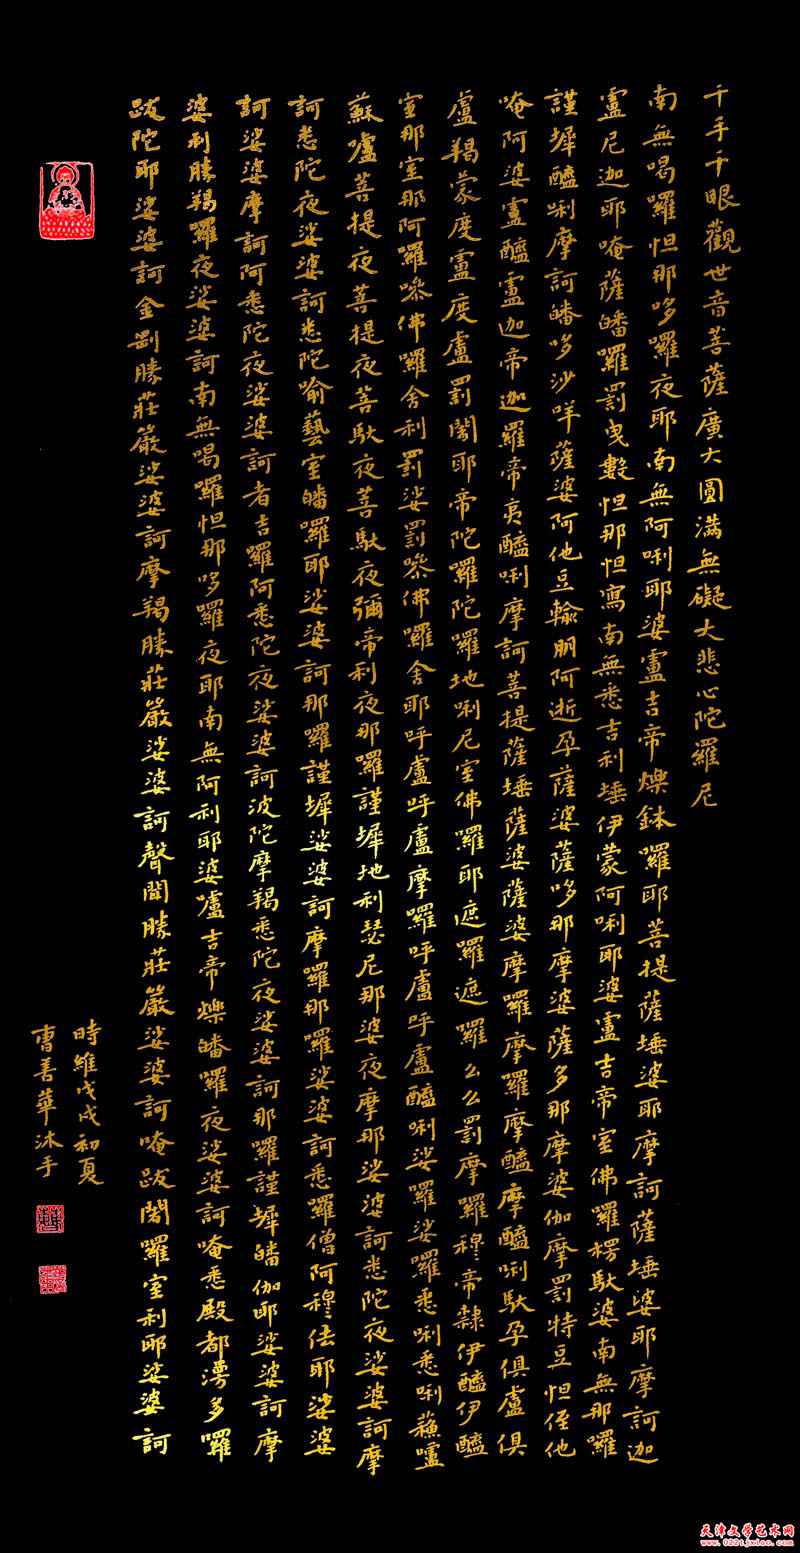 千手千眼觀世音菩薩廣大圓滿無礙大悲心陀羅尼
南無喝囉怛那哆囉夜耶南無阿唎耶婆盧吉帝爍鉢囉耶菩提薩埵婆耶摩訶薩埵婆耶摩訶迦
盧尼迦耶唵薩皤囉罰曳數怛那怛寫南無悉吉利埵伊蒙阿唎耶婆盧吉帝室佛囉楞馱婆南無那囉
謹墀醯唎摩訶皤哆沙咩薩婆阿他豆輸朋阿逝孕薩婆薩哆那摩婆薩多那摩婆伽摩罰特豆怛侄他
唵阿婆盧醯盧迦帝迦羅帝夷醯唎摩訶菩提薩埵薩婆薩婆摩囉摩囉摩醯摩醯唎馱孕俱盧俱
盧羯蒙度盧度盧罰闍耶帝陀囉陀囉地唎尼室佛囉耶遮囉遮囉么么罰摩囉穆帝隸伊醯伊醯
室那室那阿囉嘇佛囉舍利罰娑罰嘇佛囉舍耶呼盧呼盧摩囉呼盧呼盧醯唎娑囉娑囉悉唎悉唎蘇嚧
蘇嚧菩提夜菩提夜菩馱夜菩馱夜彌帝利夜那囉謹墀地利瑟尼那婆夜摩那娑婆訶悉陀夜娑婆訶摩
訶悉陀夜娑婆訶悉陀喻藝室皤囉耶娑婆訶那囉謹墀娑婆訶摩囉那囉娑婆訶悉囉僧阿穆佉耶娑婆
訶娑婆摩訶阿悉陀夜娑婆訶者吉囉阿悉陀夜娑婆訶波陀摩羯悉陀夜娑婆訶那囉謹墀皤伽耶娑婆訶摩
婆利勝羯囉夜娑婆訶南無喝囉怛那哆囉夜耶南無阿利耶婆嚧吉帝爍皤囉夜娑婆訶唵悉殿都漫多囉
跋陀耶娑婆訶金剛勝莊嚴娑婆訶摩羯勝莊嚴娑婆訶聲聞勝莊嚴娑婆訶唵跋闍囉室利耶娑婆訶
時維戊戌初夏
曹善華沐手
天津文学艺术网
www.022tjxiao.com